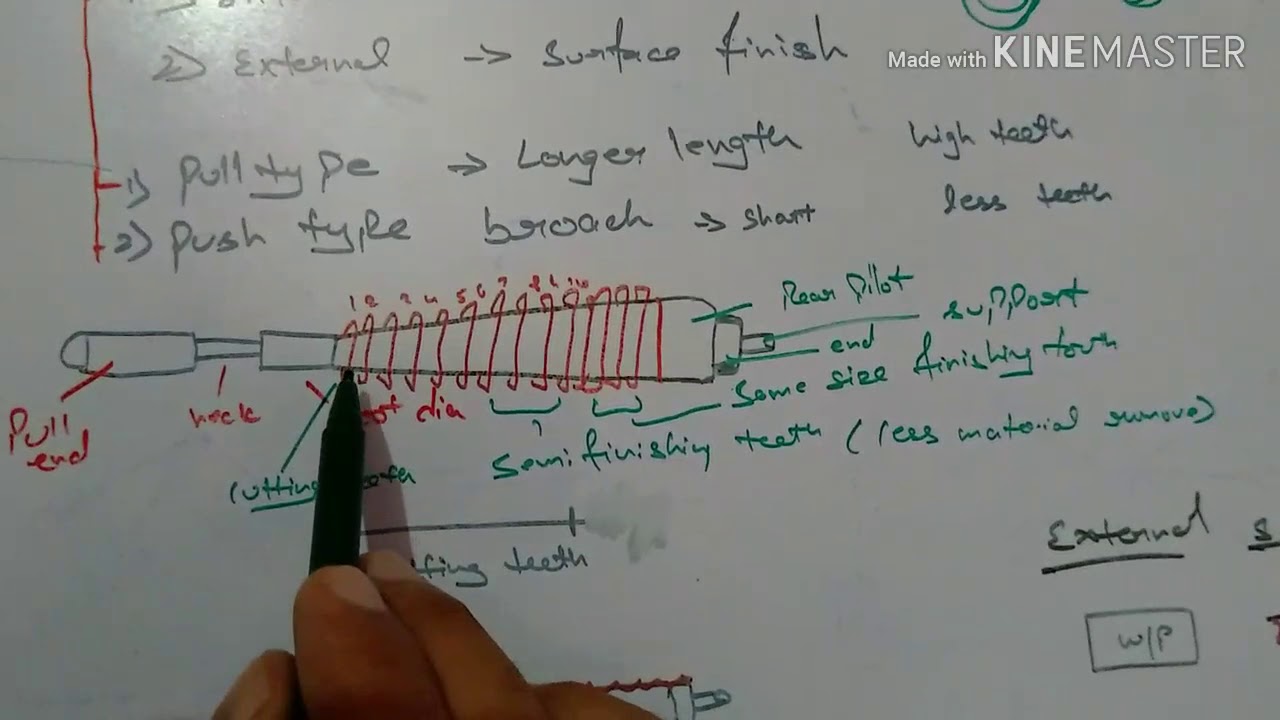 2) External -> Surface finish
Made with KINEMASTER
1) Pull type -> Longer length high teeth
2) Push type broach -> short less teeth
1 2 3 4 5 6 7 8
Rear Pilot
support
end
Pull
end
neck
dia
Same size finishing tooth
Semifinishing teeth (less material remove)
Cutting
teeth
External
W/P